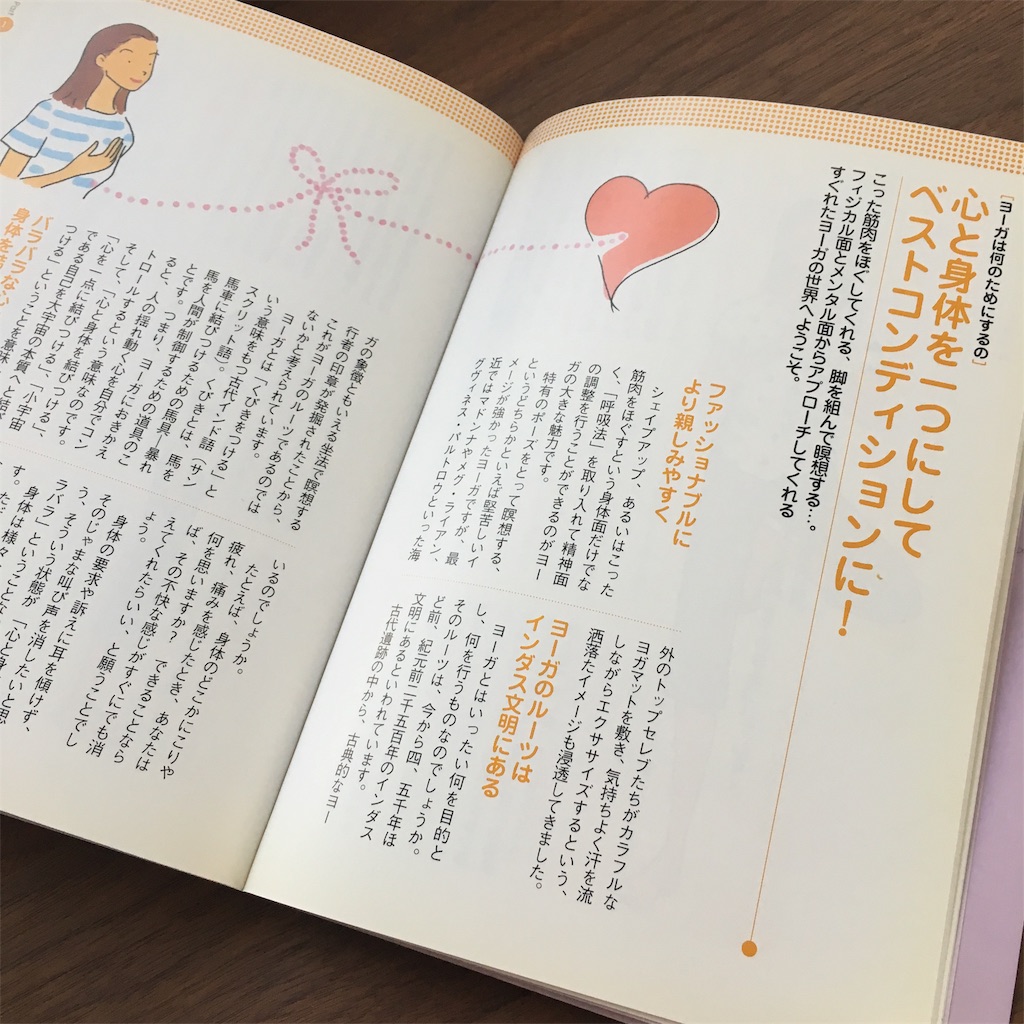 [ヨーガは何のためにするの]
心と身体を一つにして
ベストコンディションに!
こった筋肉をほぐしてくれる、脚を組んで瞑想する…。
フィジカル面とメンタル面からアプローチしてくれる
すぐれたヨーガの世界へようこそ。
ファッショナブルに
より親しみやすく
シェイプアップ、あるいはこった
筋肉をほぐすという身体面だけでな
く、「呼吸法」を取り入れて精神面
の調整を行うことができるのがヨー
ガの大きな魅力です。
特有のポーズをとって瞑想する、
というどちらかといえば堅苦しいイ
メージが強かったヨーガですが、最
近ではマドンナやメグ・ライアン、
グヴィネス・パルトロウといった海
外のトップセレブたちがカラフルな
ヨガマットを敷き、気持ちよく汗を流
しながらエクササイズするという、
洒落たイメージも浸透してきました。
ヨーガのルーツは
インダス文明にある
ヨーガとはいったい何を目的と
し、何を行うものなのでしょうか。
そのルーツは、今から四、五千年ほ
ど前、紀元前二千五百年のインダス
文明にあるといわれています。
古代遺跡の中から、古典的なヨー
ガの象徴ともいえる坐法で瞑想する
行者の印章が発掘されたことから、
これがヨーガのルーツであるのでは
ないかと考えられています。
ヨーガとは「くびきをつける」と
いう意味をもつ古代インド語(サン
スクリット語)。くびきとは、馬を
馬車に結びつけるための馬具=暴れ
馬を人間が制御するための道具のこ
とです。つまり、ヨーガにおきかえ
ると、人の揺れ動く心を自分でコン
トロールするという意味なのです。
そして、「心と身体を結びつける」、
「心を一点に結びつける」、「小宇宙
である自己を大宇宙の本質へと結び
つける」ということを意味
バラバラな心
身体を結
いるのでしょうか。
たとえば、身体のどこかにこりや
疲れ、痛みを感じたとき、あなたは
何を思いますか? できることなら
ば、その不快な感じがすぐにでも消
えてくれたらいい、と願うことでし
ょう。
身体の要求や訴えに耳を傾けず、
そのじゃまな叫び声を消したいと思
う、そういう状態が、「心と身
ラバラ」ということな
身体は様々
す。ただ